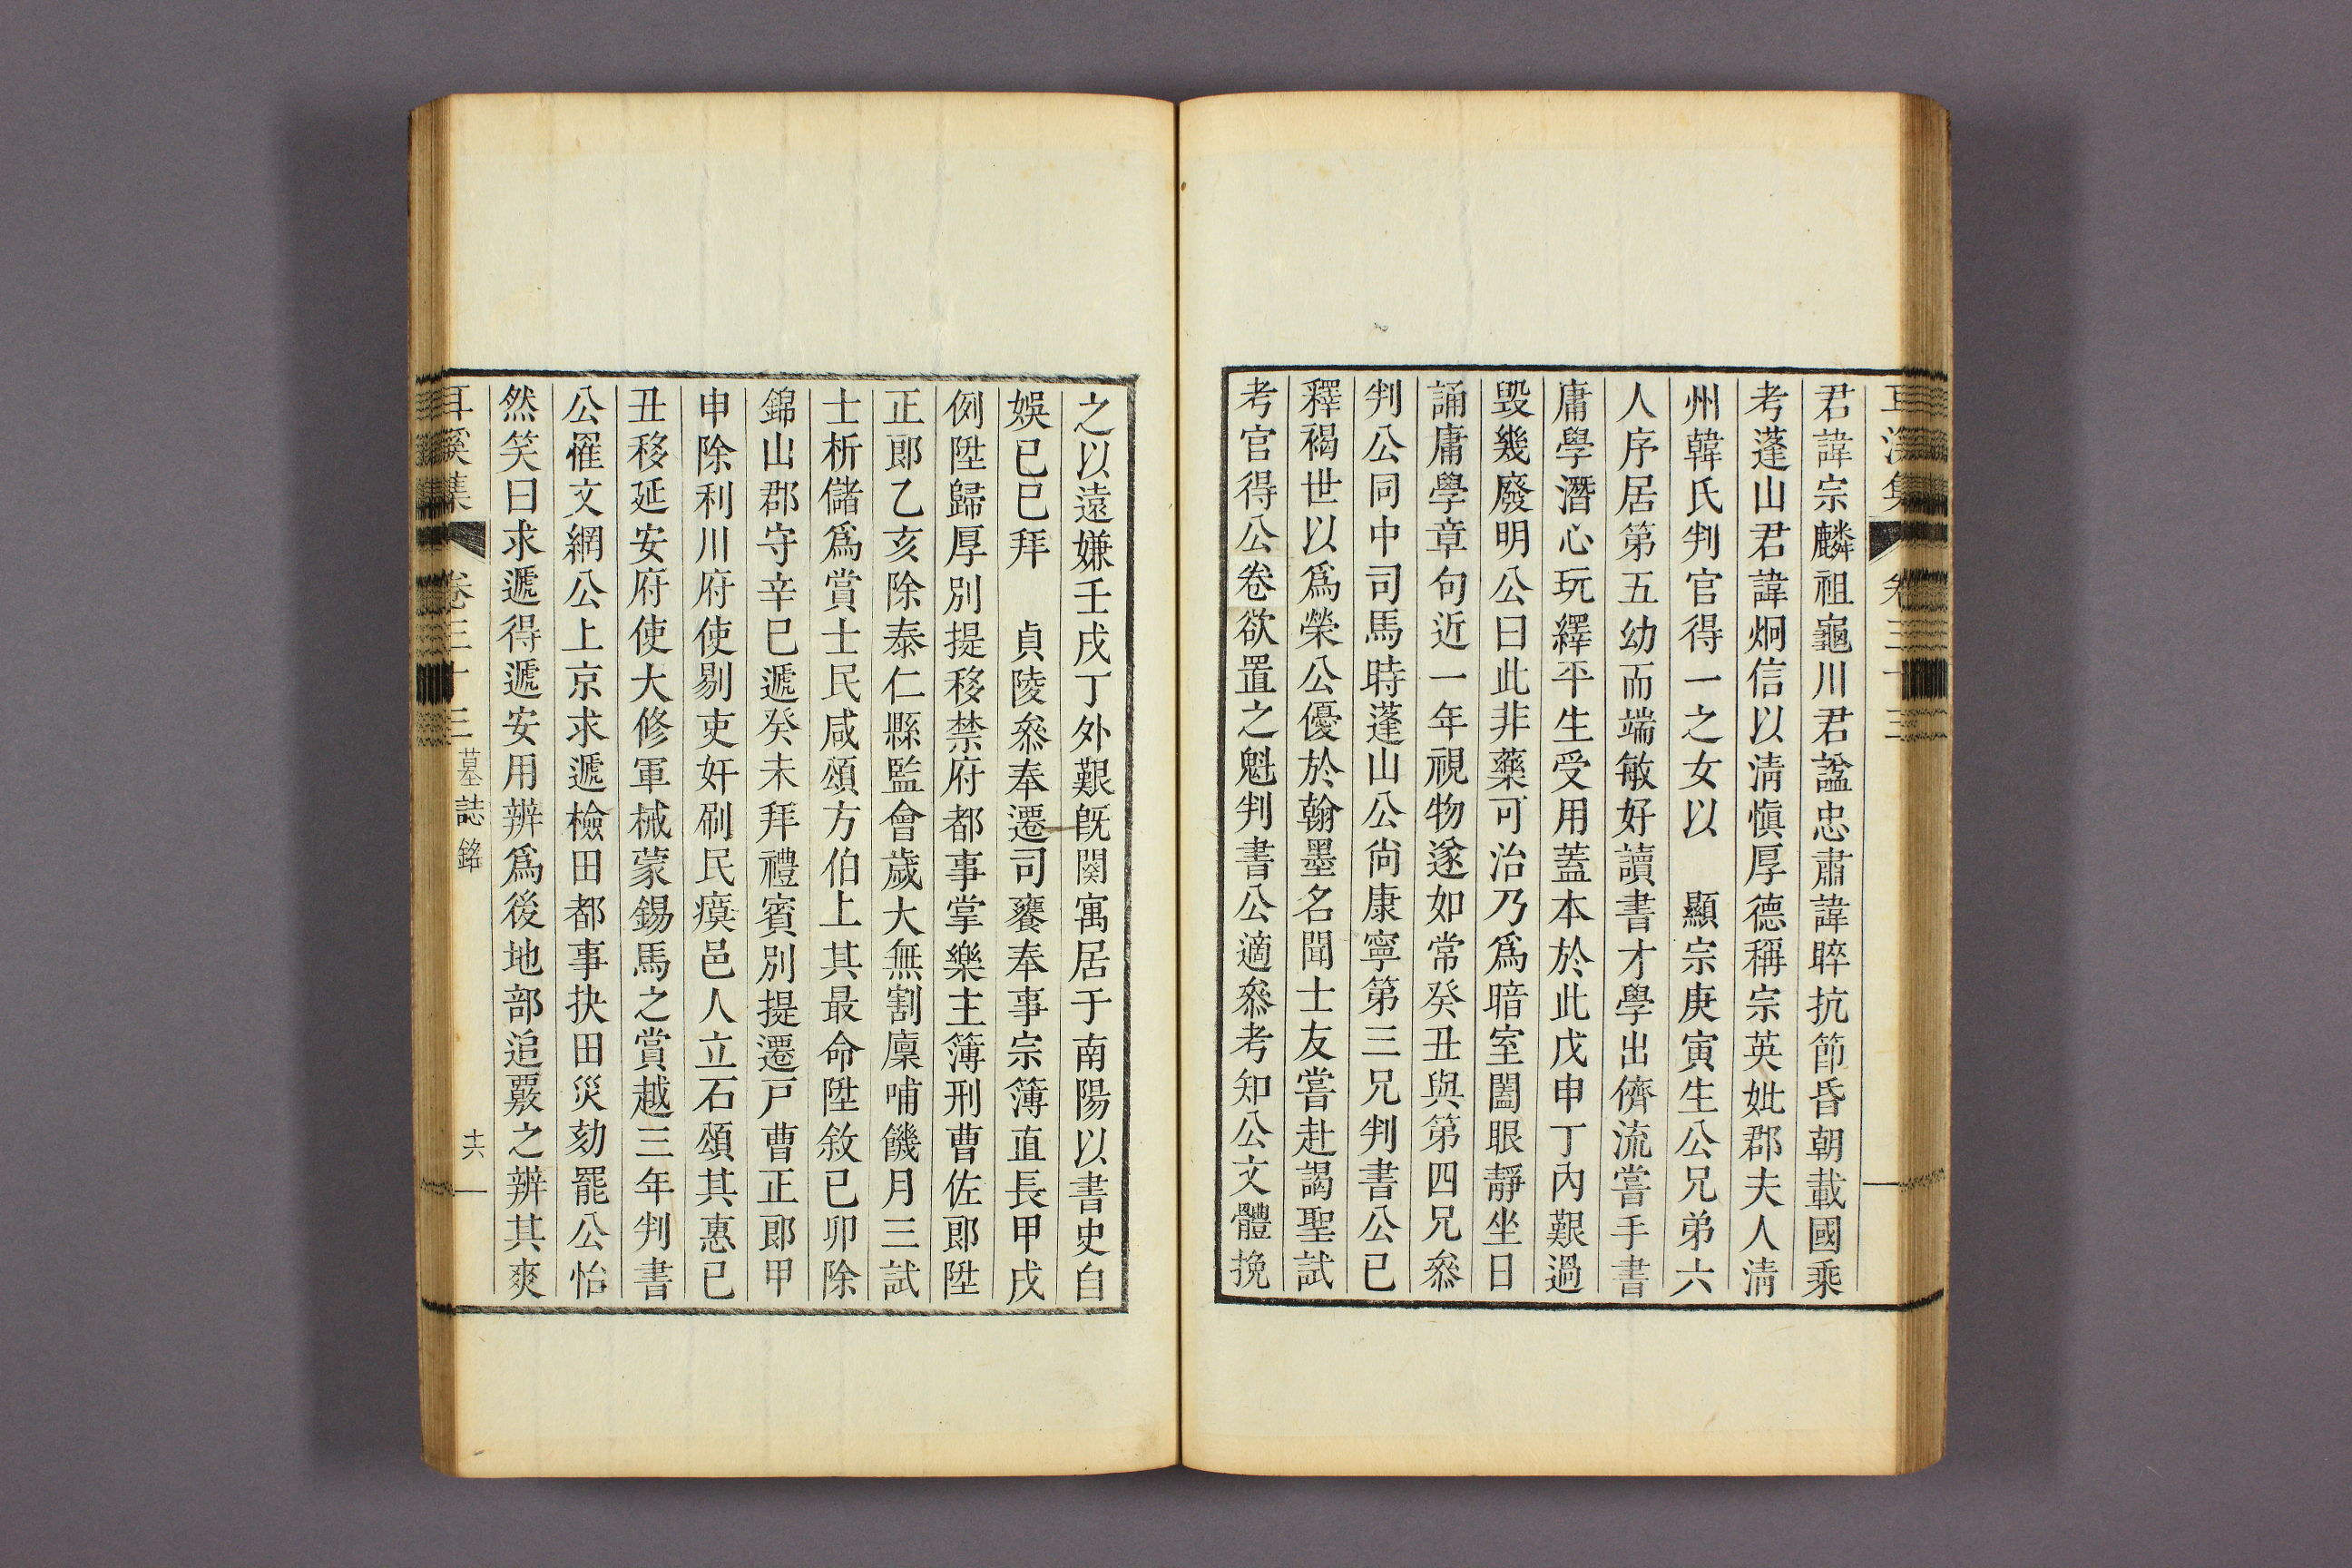 君諱宗麟祖龜川君諡忠肅諱睟抗節昏朝載國乘
考蓬山君諱炯信以淸愼厚德稱宗英妣郡夫人淸
州韓氏判官得一之女以 顯宗庚寅生公兄弟六
人序居第五幼而端敏好讀書才學出儕流嘗手書
庸學潛心玩繹平生受用蓋本於此戊申丁內艱過
毁幾廢明公曰此非藥可治乃爲暗室闔眼靜坐日
誦庸學章句近一年視物遂如常癸丑與第四兄叅
判公同中司馬時蓬山公尙康寧第三兄判書公已
釋褐世以爲榮公優於翰墨名聞士友嘗赴謁聖試
考官得公卷欲置之魁判書公適叅考知公文體挽
之以遠嫌壬戌丁外艱旣闋寓居于南陽以書史自
娛已巳拜 貞陵叅奉遷司饔奉事宗簿直長甲戌
例陞歸厚別提移禁府都事掌樂主簿刑曹佐郞陞
正郞乙亥除泰仁縣監會歲大無割廩哺饑月三試
士析儲爲賞士民咸頌方伯上其最命陞敘已卯除
錦山郡守辛巳遞癸未拜禮賓別提遷戶曹正郞甲
申除利川府使剔吏奸刷民瘼邑人立石頌其惠已
丑移延安府使大修軍械蒙錫馬之賞越三年判書
公罹文網公上京求遞檢田都事抉田災劾罷公怡
然笑曰求遞得遞安用辨爲後地部追覈之辨其爽
耳溪集 卷三十三 墓誌銘 十六